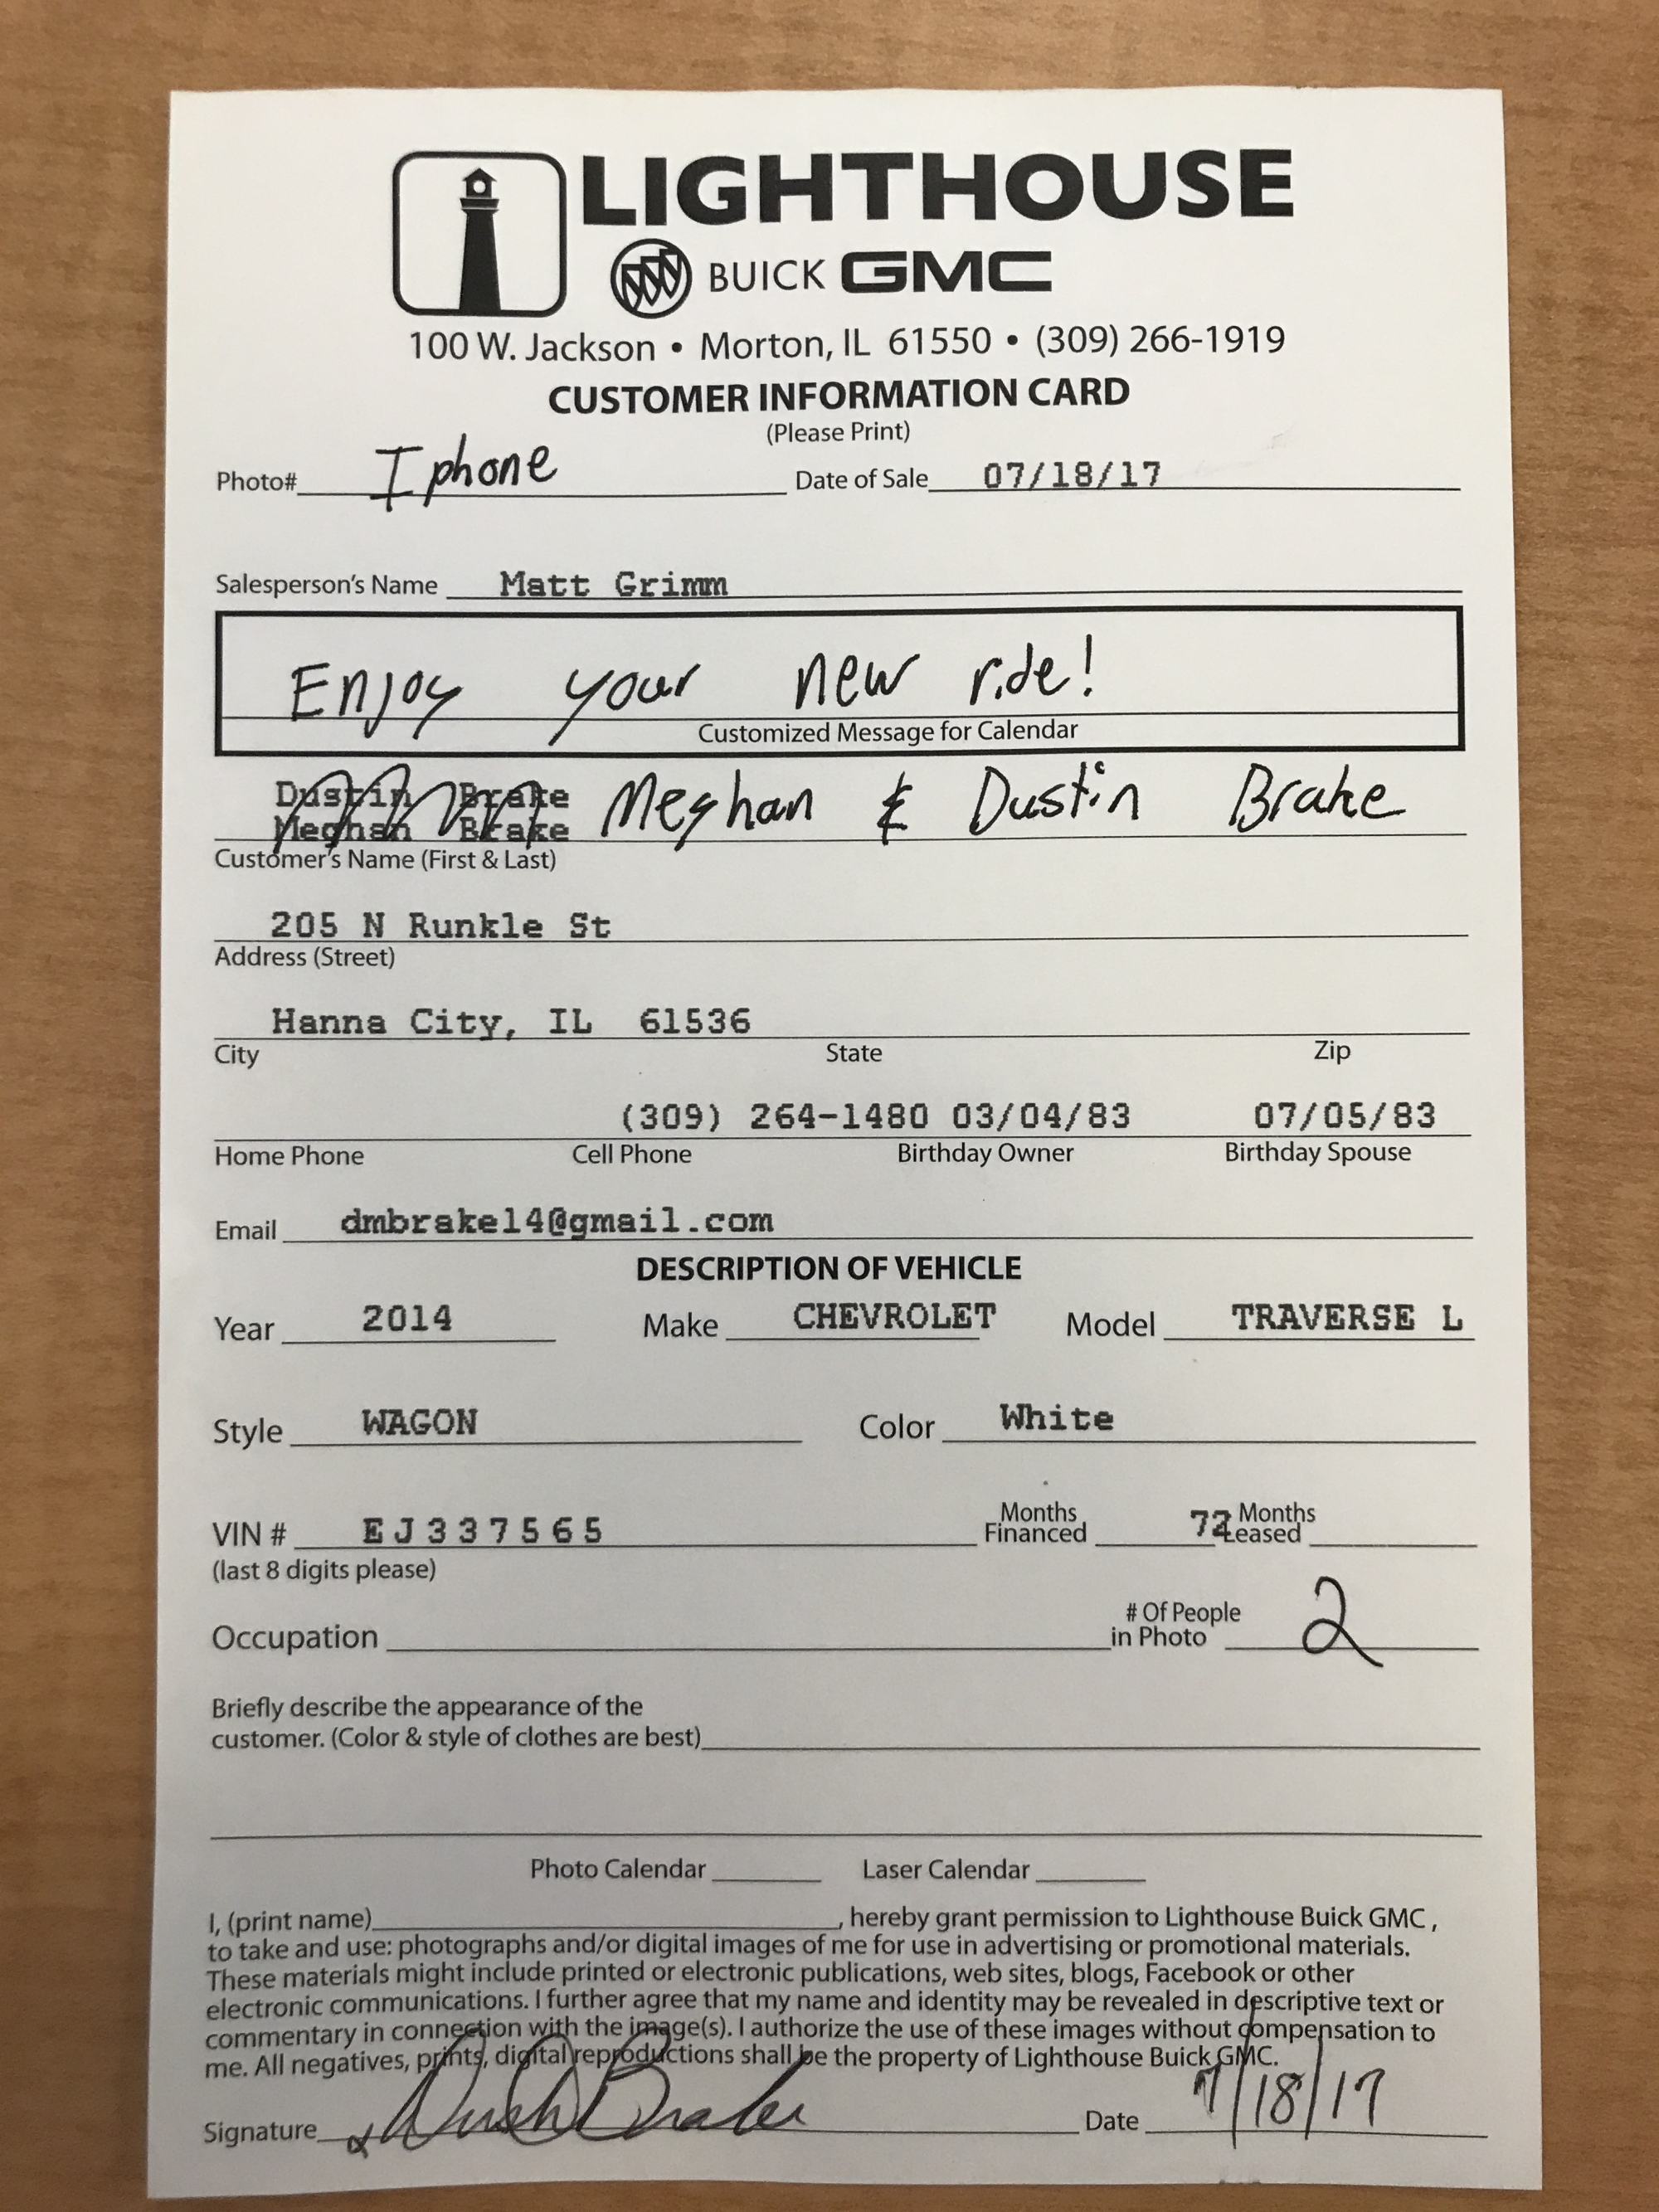 LIGHTHOUSE
BUICK GMC
100 W. Jackson • Morton, IL 61550 • (309) 266-1919
CUSTOMER INFORMATION CARD
(Please Print)
Photo# Iphone Date of Sale 07/18/17
Salesperson's Name Matt Grimm
Enjoy your new ride!
Customized Message for Calendar
Dustin Brake
Meghan Brake Meghan & Dustin Brake
Customer's Name (First & Last)
205 N Runkle St
Address (Street)
Hanna City, IL 61536
City State Zip
(309) 264-1480 03/04/83 07/05/83
Home Phone Cell Phone Birthday Owner Birthday Spouse
Email dmbrake14@gmail.com
DESCRIPTION OF VEHICLE
Year 2014 Make CHEVROLET Model TRAVERSE L
Style WAGON Color White
VIN # EJ337565 Months Financed 72 Months Leased
(last 8 digits please)
Occupation # Of People in Photo 2
Briefly describe the appearance of the
customer. (Color & style of clothes are best)
Photo Calendar Laser Calendar
I, (print name), hereby grant permission to Lighthouse Buick GMC,
to take and use: photographs and/or digital images of me for use in advertising or promotional materials.
These materials might include printed or electronic publications, web sites, blogs, Facebook or other
electronic communications. I further agree that my name and identity may be revealed in descriptive text or
commentary in connection with the image(s). I authorize the use of these images without compensation to
me. All negatives, prints, digital reproductions shall be the property of Lighthouse Buick GMC.
Signature Dustin Brake Date 7/18/17